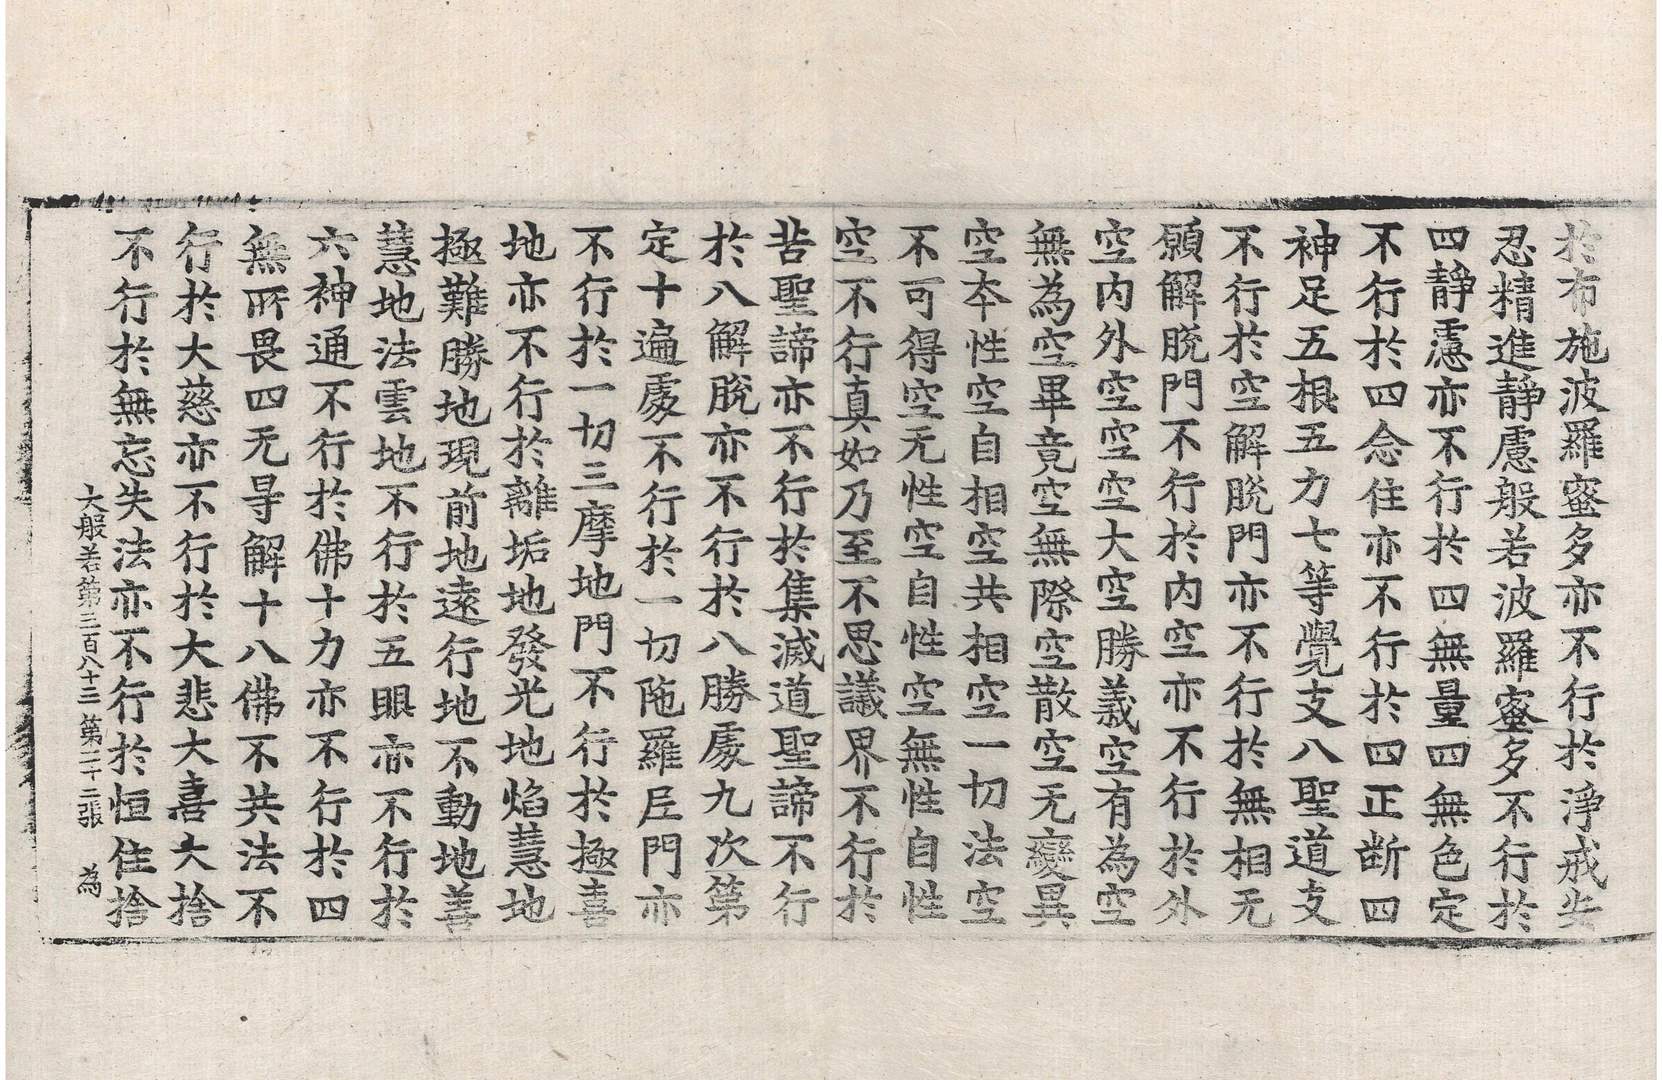 於布施波羅蜜多亦不行於淨戒安
忍精進靜慮般若波羅蜜多不行於
四靜慮亦不行於四無量四無色定
不行於四念住亦不行於四正断四
神足五根五力七等覺支八聖道支
不行於空解脫門亦不行於無相无
願解脫門不行於內空亦不行於外
空內外空空空大空勝義空有為空
無為空畢竟空無際空散空无變異
空夲性空自相空共相空一切法空
不可得空无性空自性空無性自性
空不行真如乃至不思議界不行於
苦聖諦亦不行於集滅道聖諦不行
於八解脫亦不行於八勝處九次第
定十遍處不行於一切陁羅尼門亦
不行於一切三摩地門不行於極喜
地亦不行於離垢地發光地焰慧地
極難勝地現前地遠行地不動地善
慧地法雲地不行於五眼亦不行於
六神通不行於佛十力亦不行於四
無所畏四无㝵解十八佛不共法不
行於大慈亦不行於大悲大喜大捨
不行於無忘失法亦不行於恒住捨
大般若第三百八十三 第二十二張 為